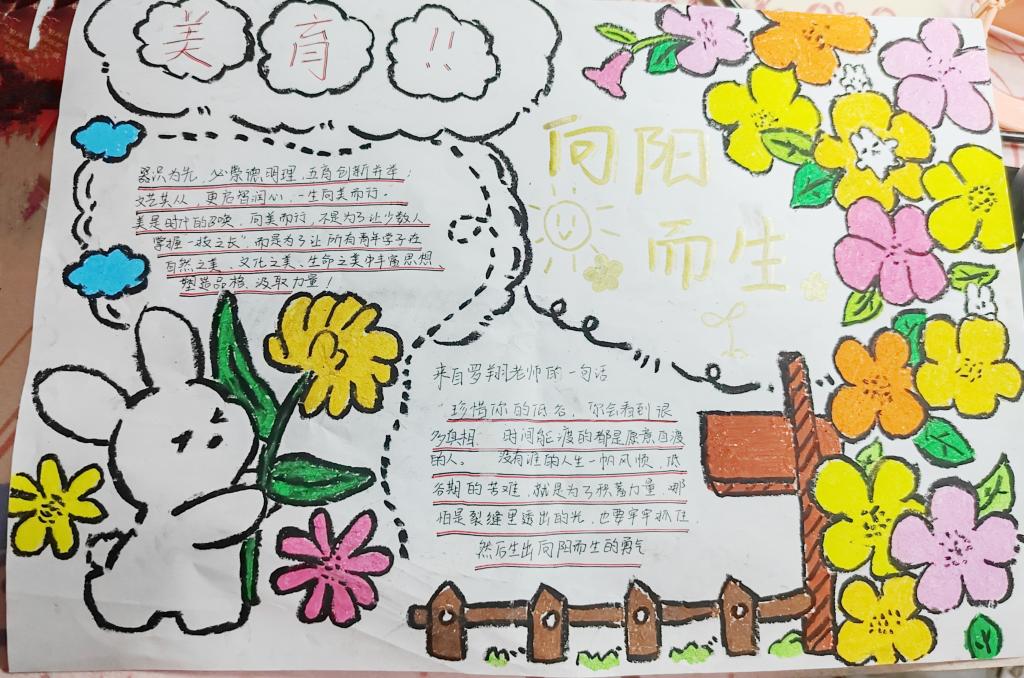 美育!!
向阳
而生
器识为先，必崇德明理，五育创新并举；
文艺其从，更启智润心，一生向美而行.
美是时代的召唤，向美而行，不是为了让少数人
掌握"一技之长"，而是为了让所有青年学子在
自然之美、文化之美、生命之美中丰富思想，
塑造品格、汲取力量！
来自罗翔老师的一句话
"珍惜你的低谷，你会看到很
多真相. 时间能渡的都是愿意自渡
的人。 没有谁的人生一帆风顺，低
谷期的苦难，就是为了积蓄力量 哪
怕是裂缝里透出的光，也要牢牢抓住.
然后生出向阳而生的勇气